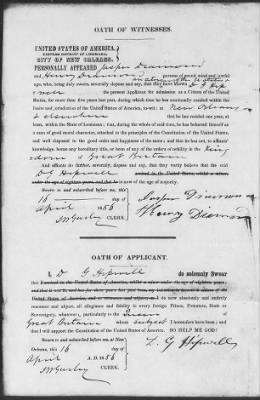 OATH OF WITNESSES.
UNITED STATES OF AMERICA,
EASTERN DISTRICT OF LOUISIANA,
CITY OF NEW ORLEANS.
PERSONALLY APPEARED Jasper
and Henry persons of sound mind and lawful
age, who, being duly sworn, severally depose and say, that they
the present Applicant for admission as a Citizen of the
United States, for more than five years last past, during which time he has constantly resided within the
limits and jurisdiction of the United States, viz: New Orleans
& elsewhere that he has resided one year, at
least, within the State of Louisiana; that, during the whole of said time, he has behaved himself as
a man of good moral character, attached to the principles of the Constitution of the United States,
and well disposed to the good order and happiness of the same; and that he has not, to affiants'
knowledge, borne any hereditary title, or been of any of the orders of nobility in the King
dom of Great Britain
And affiants do further, severally, depose and say, that they verily believe the said
D G Hipwell
and is now of the age of majority.
Sworn to and subscribed before me, this
16 day of
April 1856
CLERK.
Jasper
Henry
OATH OF APPLICANT.
I, D G Hipwell do solemnly Swear
I do now absolutely and entirely
renounce and abjure, all allegiance and fidelity to every foreign Prince, Potentate, State or
Sovereignty, whatever, particularly to the Queen of
Great Britain whose subject I heretofore have been; and
that I will support the Constitution of the United States of America. SO HELP ME GOD!
Sworn to and subscribed before me, at New
Orleans, this 16 day of
April A.D. 1856
CLERK.
G Hipwell